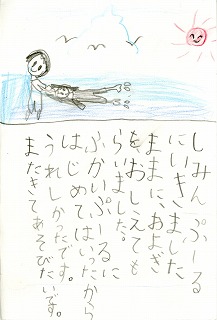 しみんぷーる
にいきました
ままに、あよぎ
をおしえても
らいました。
ふかいぷーるに
はじめてはいったから
うれしかったです。
またきてあそびたいです。